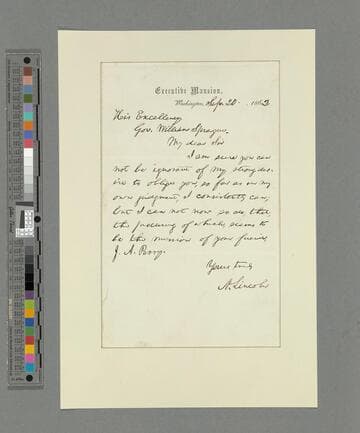 Executive Mansion,
Washington, Sep. 20. , 1862
His Excellency
Gov. William Sprague.
My dear Sir
I am sure you can
not be ignorant of my strong des-
ire to oblige you, so far as in my
own judgment, I consistently can;
but I can not now so see, that
the pressing of which seems to
be the mission of your friend
J. A.
Yours truly
A. Lincoln